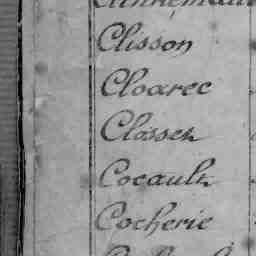 Clisson
Cloarec
Closset
Cocault
Cocherie